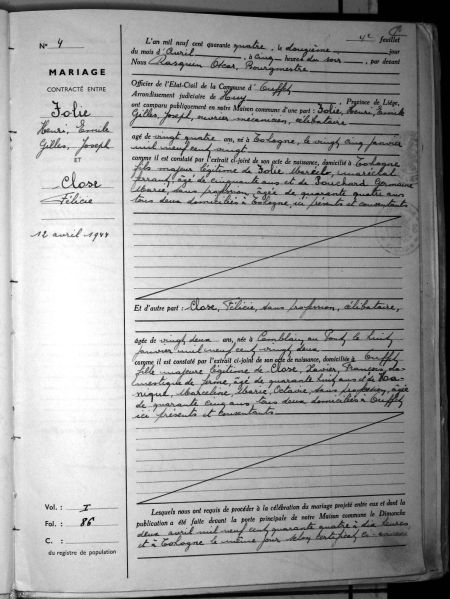 4e feuillet
N° 4
MARIAGE
CONTRACTÉ ENTRE
Jolie
Henri, Emile
Gilles, Joseph
ET
Close
Félicie
12 avril 1944
Vol. : I
Fol. : 86
C. :
du registre de population
L'an mil neuf cent quarante quatre, le douzième jour
du mois d'Avril à cinq heures du soir, par devant
Nous Rasquin Oscar, Bourgmestre
Officier de l'Etat-Civil de la Commune d' Ouffet
Arrondissement judiciaire de Huy, Province de Liége,
ont comparu publiquement en notre Maison commune d'une part : Jolie, Henri, Emile
Gilles, Joseph, ouvrier mécanicien, célibataire
agé de vingt quatre ans, né à Tohogne, le vingt cinq janvier
mil neuf cent vingt
comme il est constaté par l'extrait ci-joint de son acte de naissance, domicilié à Tohogne
fils majeur légitime de Jolie Marcel, maréchal
ferrant, âgé de cinquante ans et de Germaine
Marie, sans profession, âgée de quarante quatre ans
tous deux domiciliés à Tohogne, ici présents et consentants
Et d'autre part : Close, Félicie, sans profession, célibataire,
agée de vingt deux ans, née à Comblain au Pont, le huit
janvier mil neuf cent vingt deux
comme il est constaté par l'extrait ci-joint de son acte de naissance, domiciliée à Ouffet
fille majeure légitime de Close, Xavier, François, do-
mestique de ferme, âgé de quarante huit ans et de Ha-
nique, Marceline, Marie, Octavie, sans profession, âgée
de quarante cinq ans tous deux domiciliés à Ouffet,
ici présents et consentants.
Lesquels nous ont requis de procéder à la célébration du mariage projeté entre eux et dont la
publication a été faite devant la porte principale de notre Maison commune le Dimanche
deux avril mil neuf cent quarante quatre à dix heures
et à Tohogne le même jour selon certificat ci-annexé